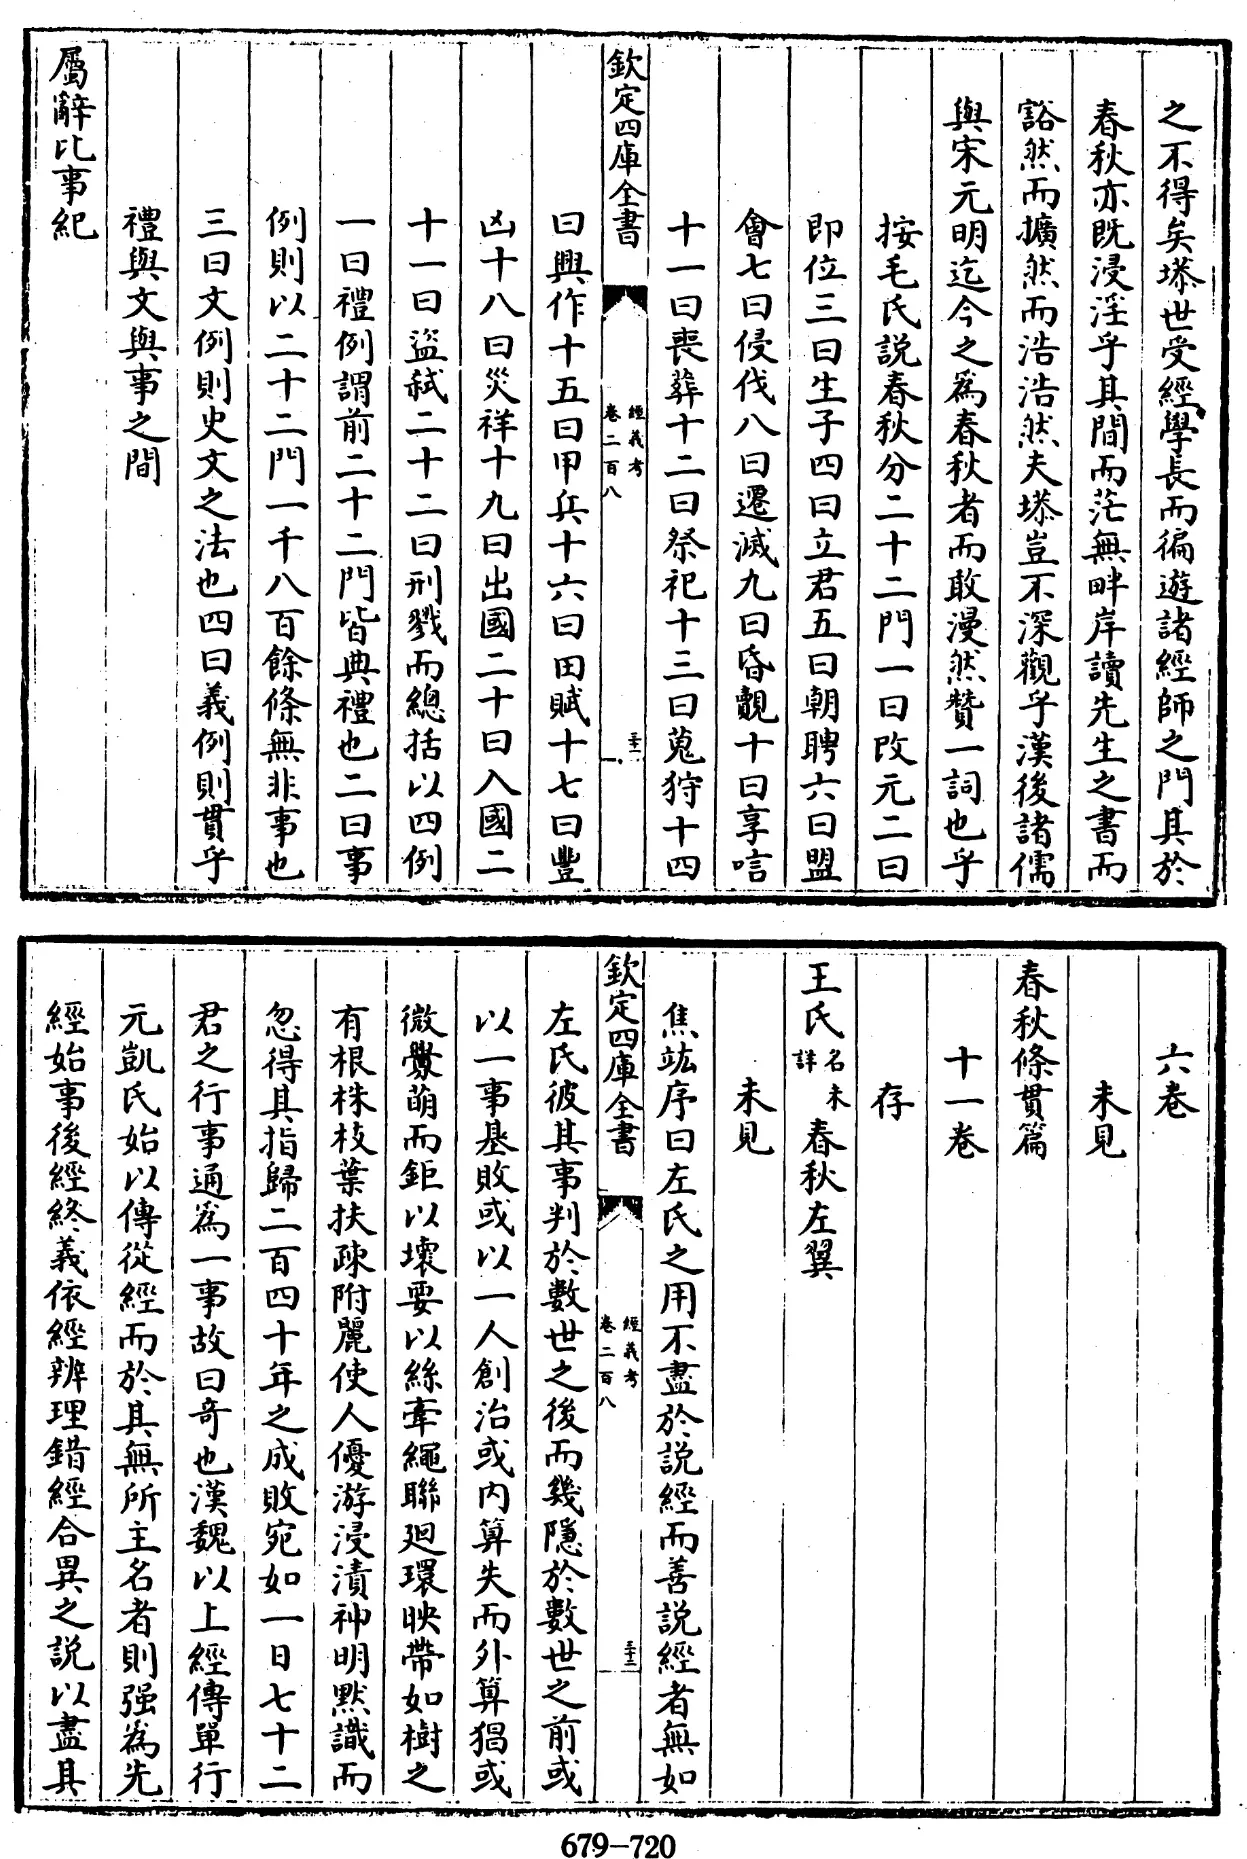 之不得矣塨世受經學長而徧遊諸經師之門其於
春秋亦既浸淫乎其間而茫無畔岸讀先生之書而
豁然而擴然而浩浩然夫塨豈不深觀乎漢後諸儒
與宋元明迄今之為春秋者而敢漫然贊一詞也乎
按毛氏説春秋分二十二門一曰改元二曰
即位三曰生子四曰立君五曰朝聘六曰盟
會七曰侵伐八曰遷滅九曰昏覿十曰享唁
十一曰喪葬十二曰祭祀十三曰蒐狩十四
欽定四庫全書
經義考
卷二百八
三十一
曰興作十五曰甲兵十六曰田賦十七曰豐
凶十八曰災祥十九曰出國二十曰入國二
十一曰盜弑二十二曰刑戮而總括以四例
一曰禮例謂前二十二門皆典禮也二曰事
例則以二十二門一千八百餘條無非事也
三曰文例則史文之法也四曰義例則貫乎
禮與文與事之間
屬辭比事紀
六卷
未見
春秋條貫篇
十一卷
存
王氏名未詳春秋左翼
未見
焦竑序曰左氏之用不盡於説經而善説經者無如
欽定四庫全書
經義考
卷二百八
三十二
左氏彼其事判於數世之後而幾隱於數世之前或
以一事基敗或以一人創治或内算失而外算猖或
微釁萌而鉅以壞要以絲牽繩聯廻環映帶如樹之
有根株枝葉扶疎附麗使人優游浸漬神明默識而
忽得其指歸二百四十年之成敗宛如一日七十二
君之行事通為一事故曰奇也漢魏以上經傳單行
元凱氏始以傳從經而於其無所主名者則强為先
經始事後經終義依經辨理錯經合異之説以盡其
679—720